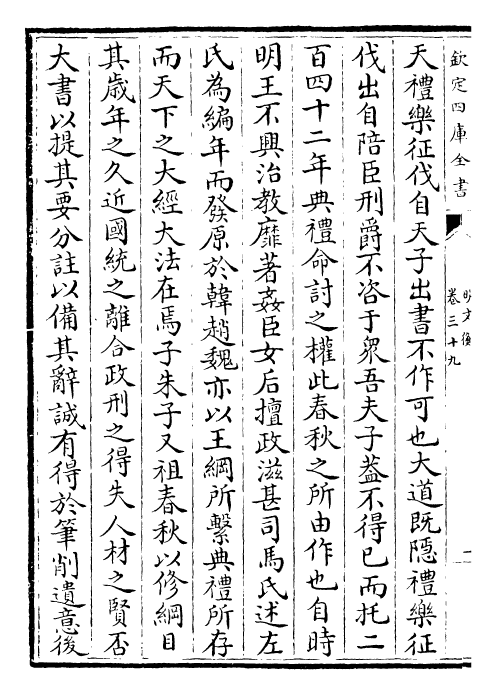 欽定四庫全書
明文衡
卷三十九
二
天禮樂征伐自天子出書不作可也大道既隱禮樂征
伐出自陪臣刑爵不咨于衆吾夫子葢不得已而托二
百四十二年典禮命討之權此春秋之所由作也自時
明王不興治教靡著姦臣女后擅政滋甚司馬氏述左
氏為編年而發原於韓趙魏亦以王綱所繫典禮所存
而天下之大經大法在焉子朱子又祖春秋以修綱目
其歳年之久近國統之離合政刑之得失人材之賢否
大書以提其要分註以備其辭誠有得於筆削遺意後